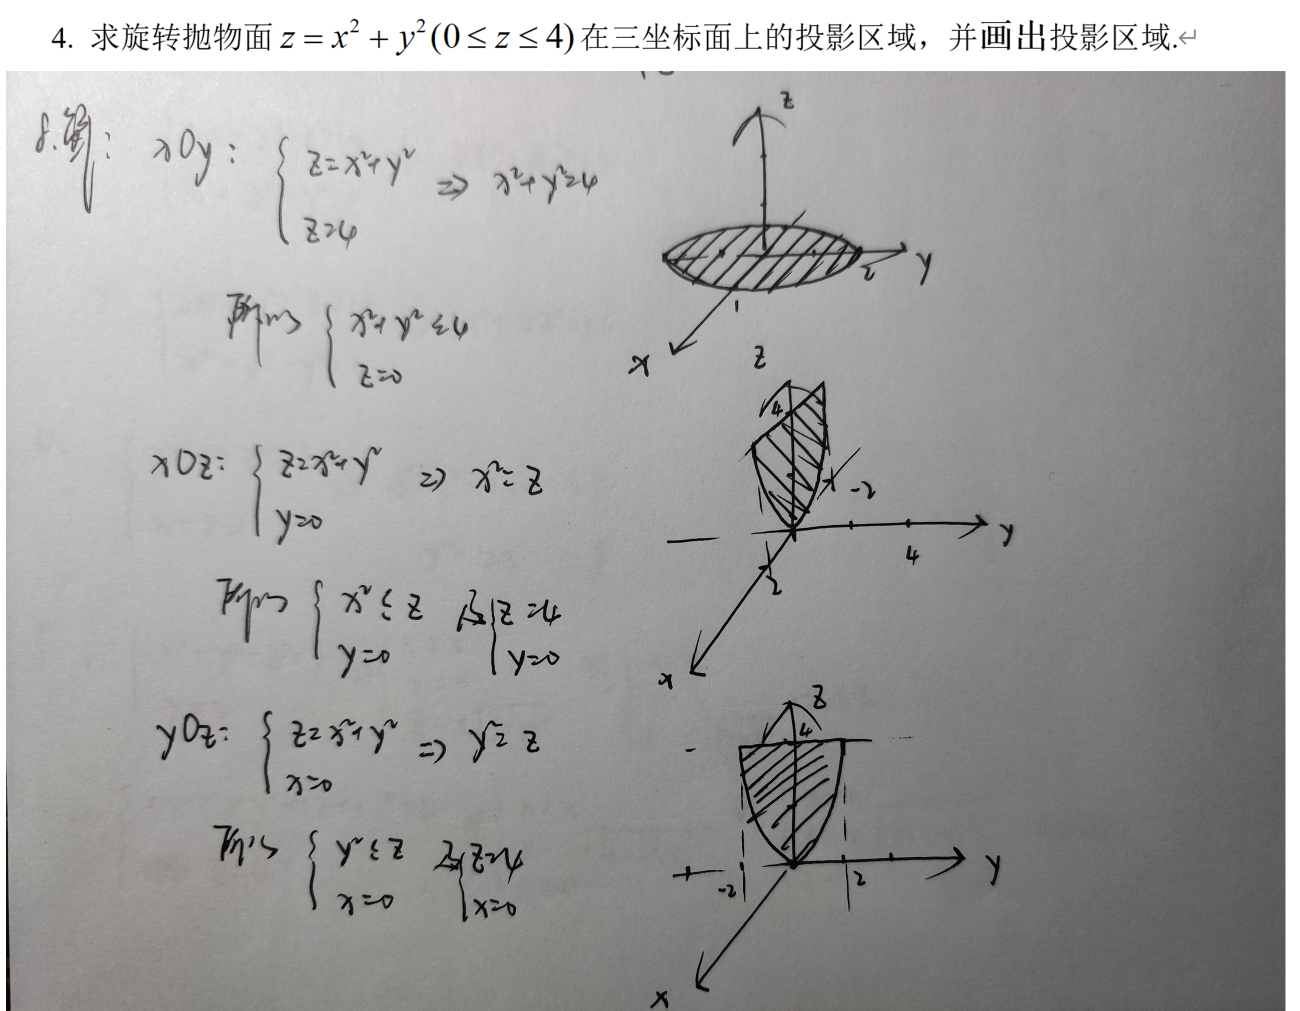 4. 求旋转抛物面 z = x² + y² (0 ≤ z ≤ 4) 在三坐标面上的投影区域，并画出投影区域.
8.解: xOy: { z=x²+y² z=4 ⇒ x²+y²=4
所以 { x²+y²≤4 z=0
xOz: { z=x²+y² y=0 ⇒ x²=z
所以 { x²≤z y=0 及 { z=4 y=0
yOz: { z=x²+y² x=0 ⇒ y²=z
所以 { y²≤z x=0 及 { z=4 x=0
z
y
2
1
x
z
4
-2
y
4
2
x
z
4
y
-2
2
x